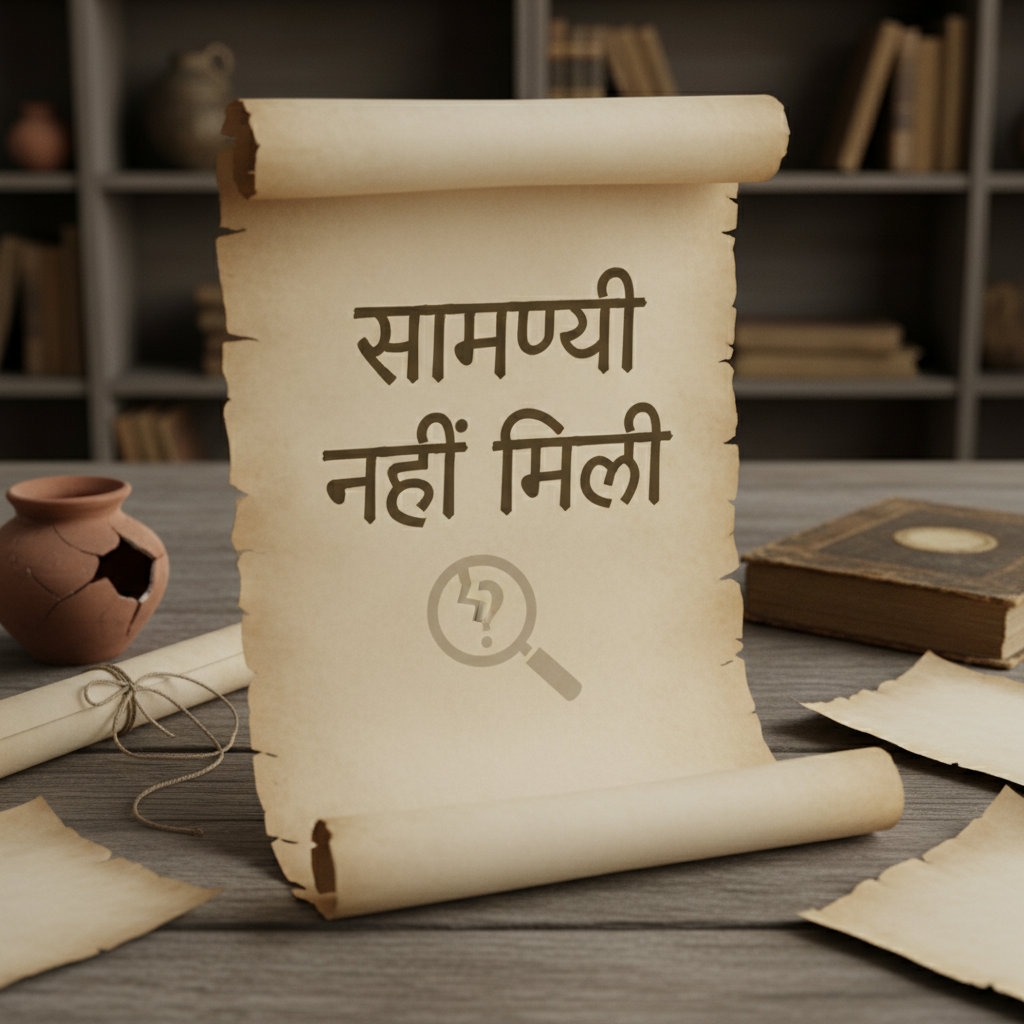 सामण्यी
नहीं मिली
?